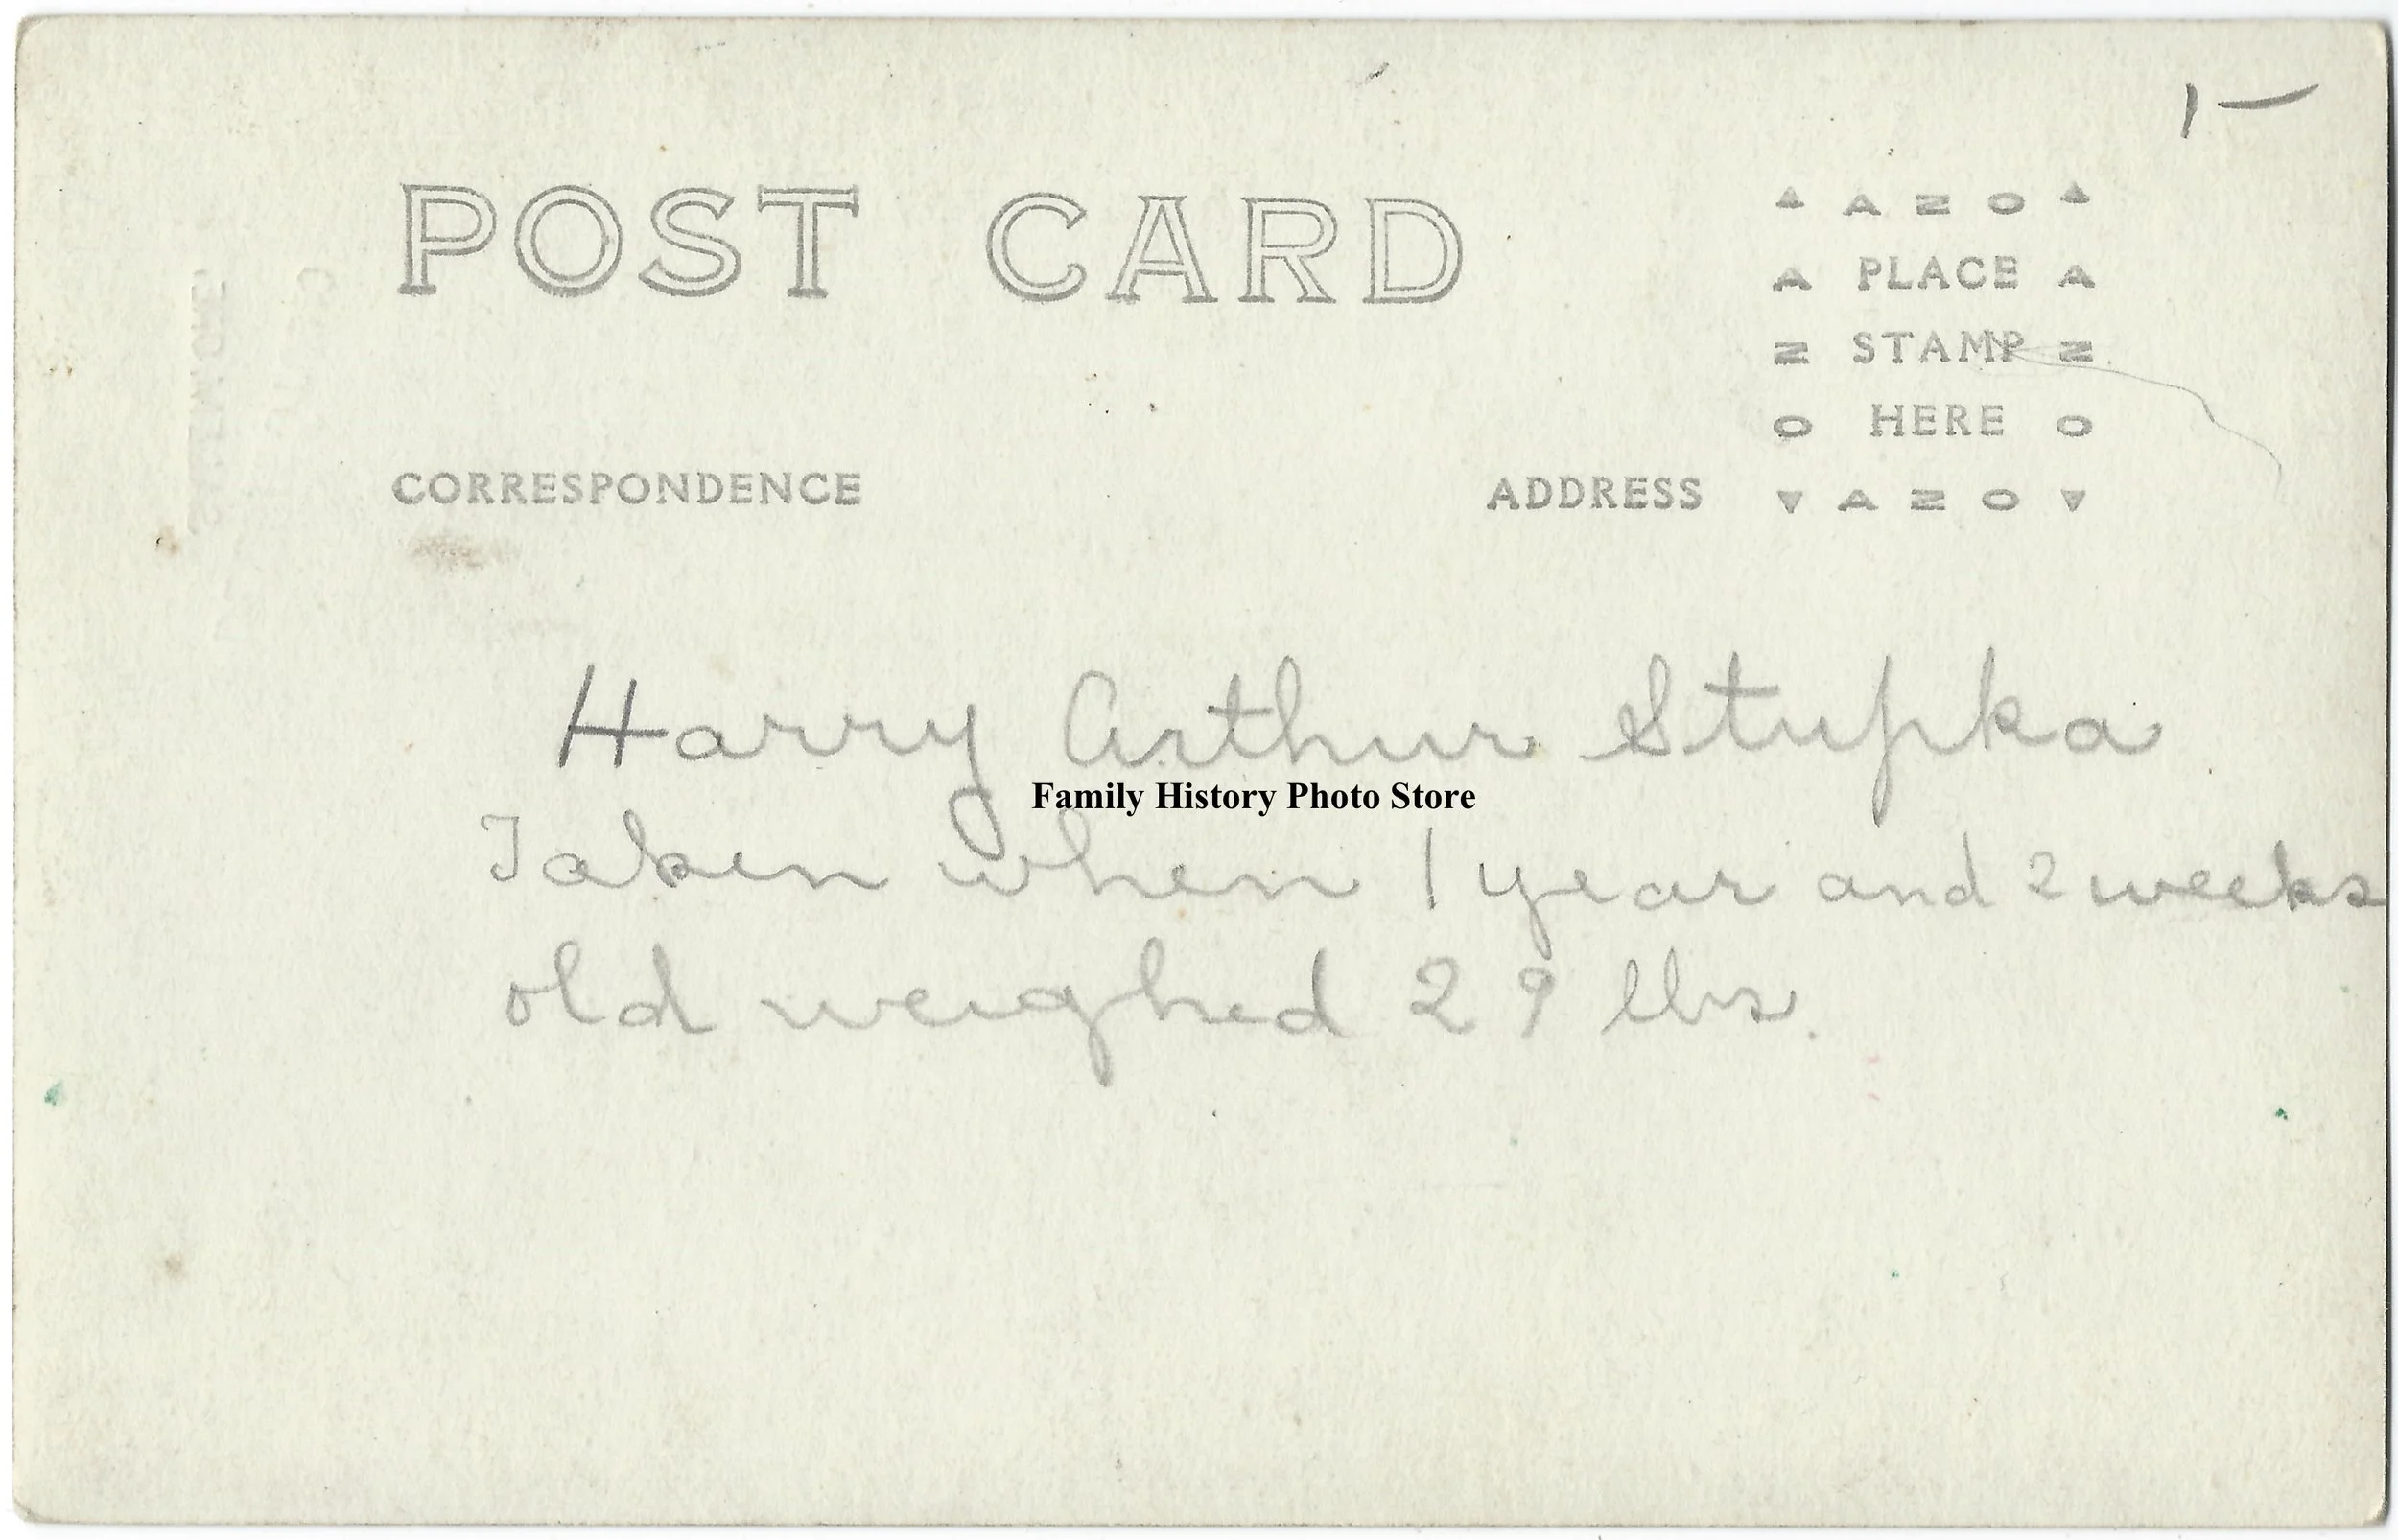 1—
POST CARD
▲ A Z O ▲
A PLACE A
Z STAMP Z
O HERE O
CORRESPONDENCE ADDRESS
▼ A Z O ▼
Harry Arthur Stupka
Family History Photo Store
Taken when 1 year and 2 weeks
old weighed 29 lbs.